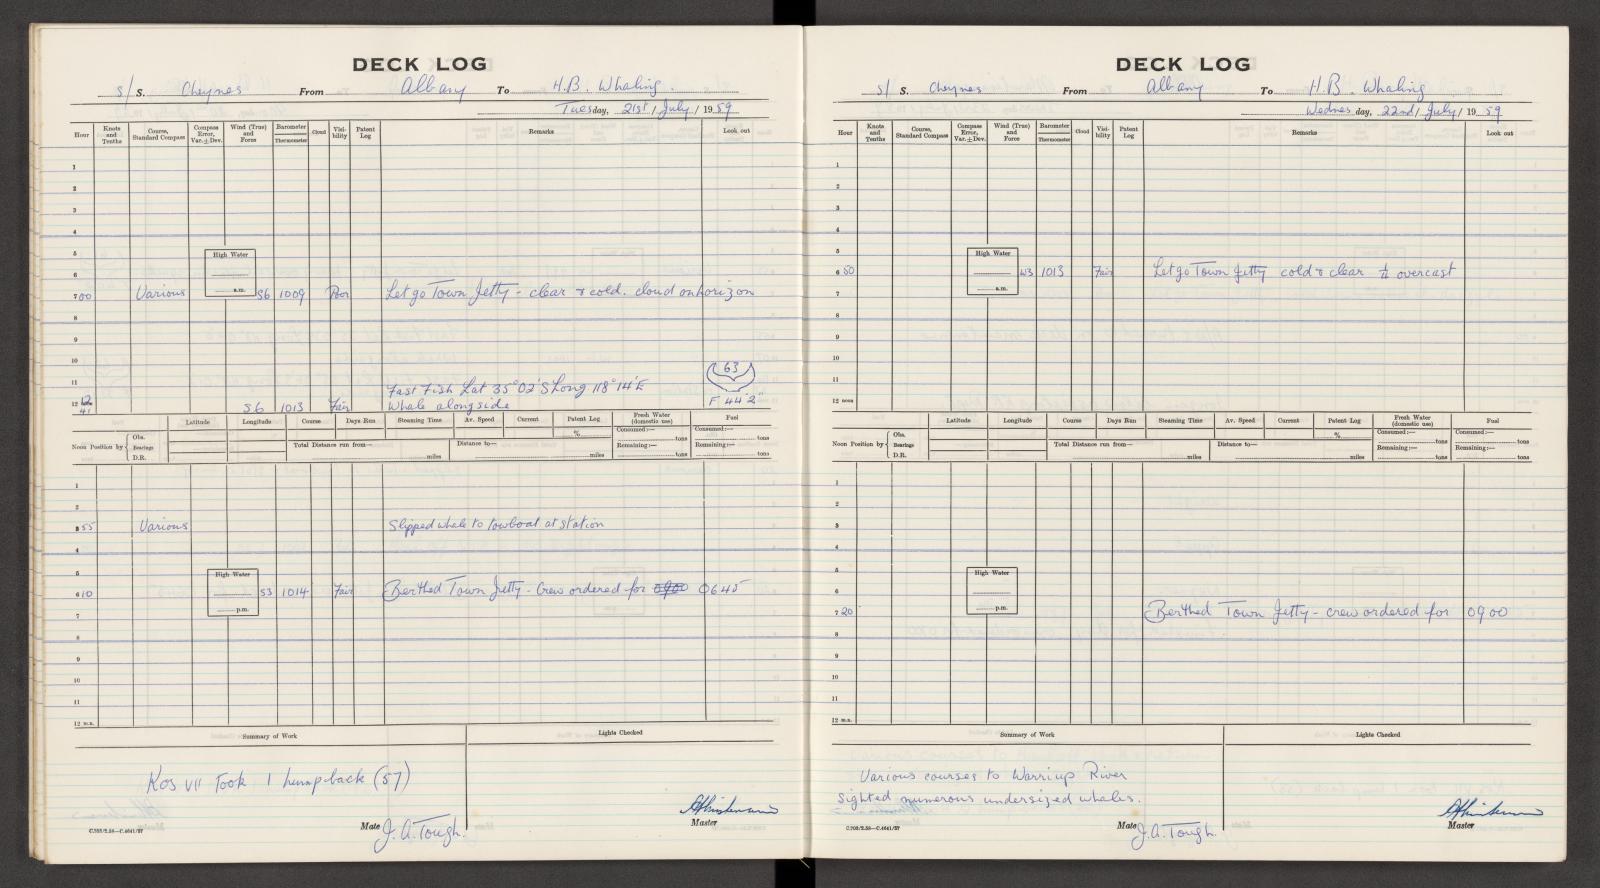 DECK LOG
s/ S. Cheynes From Albany To H.B. Whaling.
Tuesday, 21st / July / 1959
Hour Knots and Tenths Course, Standard Compass Compass Error, Var. ± Dev. Wind (True) and Force Barometer Thermometer Cloud Visibility Patent Log Remarks Look out
1
2
3
4
5 High Water
6
a.m.
7 00 Various S6 1009 Poor Let go Town Jetty - clear & cold. cloud on horizon
8
9
10
63
11 Fast Fish Lat 35° 02' S Long 118° 14' E
12 noon 12 41 S6 1013 Fair Whale alongside F 44' 2"
Noon Position by Obs. Bearings D.R. Latitude Longitude Course Days Run Steaming Time Av. Speed Current Patent Log Fresh Water (domestic use) Fuel
% Consumed:— tons Consumed:—
Total Distance run from— miles Distance to— miles Remaining:— tons Remaining:— tons
1
2
3 55 Various Slipped whale to towboat at station
4
5 High Water
6 10 S3 1014 Fair Berthed Town Jetty - Crew ordered for 0900 0645
p.m.
7
8
9
10
11
12 m.n.
Summary of Work Lights Checked
Kos VII Took 1 humpback (57)
Mate J.A. Tough. Master
C.702/2.58—C.4641/57
DECK LOG
s/ S. Cheynes From Albany To H.B. Whaling
Wednesday, 22nd / July / 1959
Hour Knots and Tenths Course, Standard Compass Compass Error, Var. ± Dev. Wind (True) and Force Barometer Thermometer Cloud Visibility Patent Log Remarks Look out
1
2
3
4
5 High Water
6 50 W3 1013 Fair Let go Town Jetty cold & clear overcast
a.m.
7
8
9
10
11
12 noon
Noon Position by Obs. Bearings D.R. Latitude Longitude Course Days Run Steaming Time Av. Speed Current Patent Log Fresh Water (domestic use) Fuel
% Consumed:— tons Consumed:— tons
Total Distance run from— miles Distance to— miles Remaining:— tons Remaining:— tons
1
2
3
4
5 High Water
6
p.m.
7 20 Berthed Town Jetty - crew ordered for 0900
8
9
10
11
12 m.n.
Summary of Work Lights Checked
Various courses to Warriup River
sighted numerous undersized whales.
Mate J.A. Tough. Master
C.702/2.58—C.4641/57